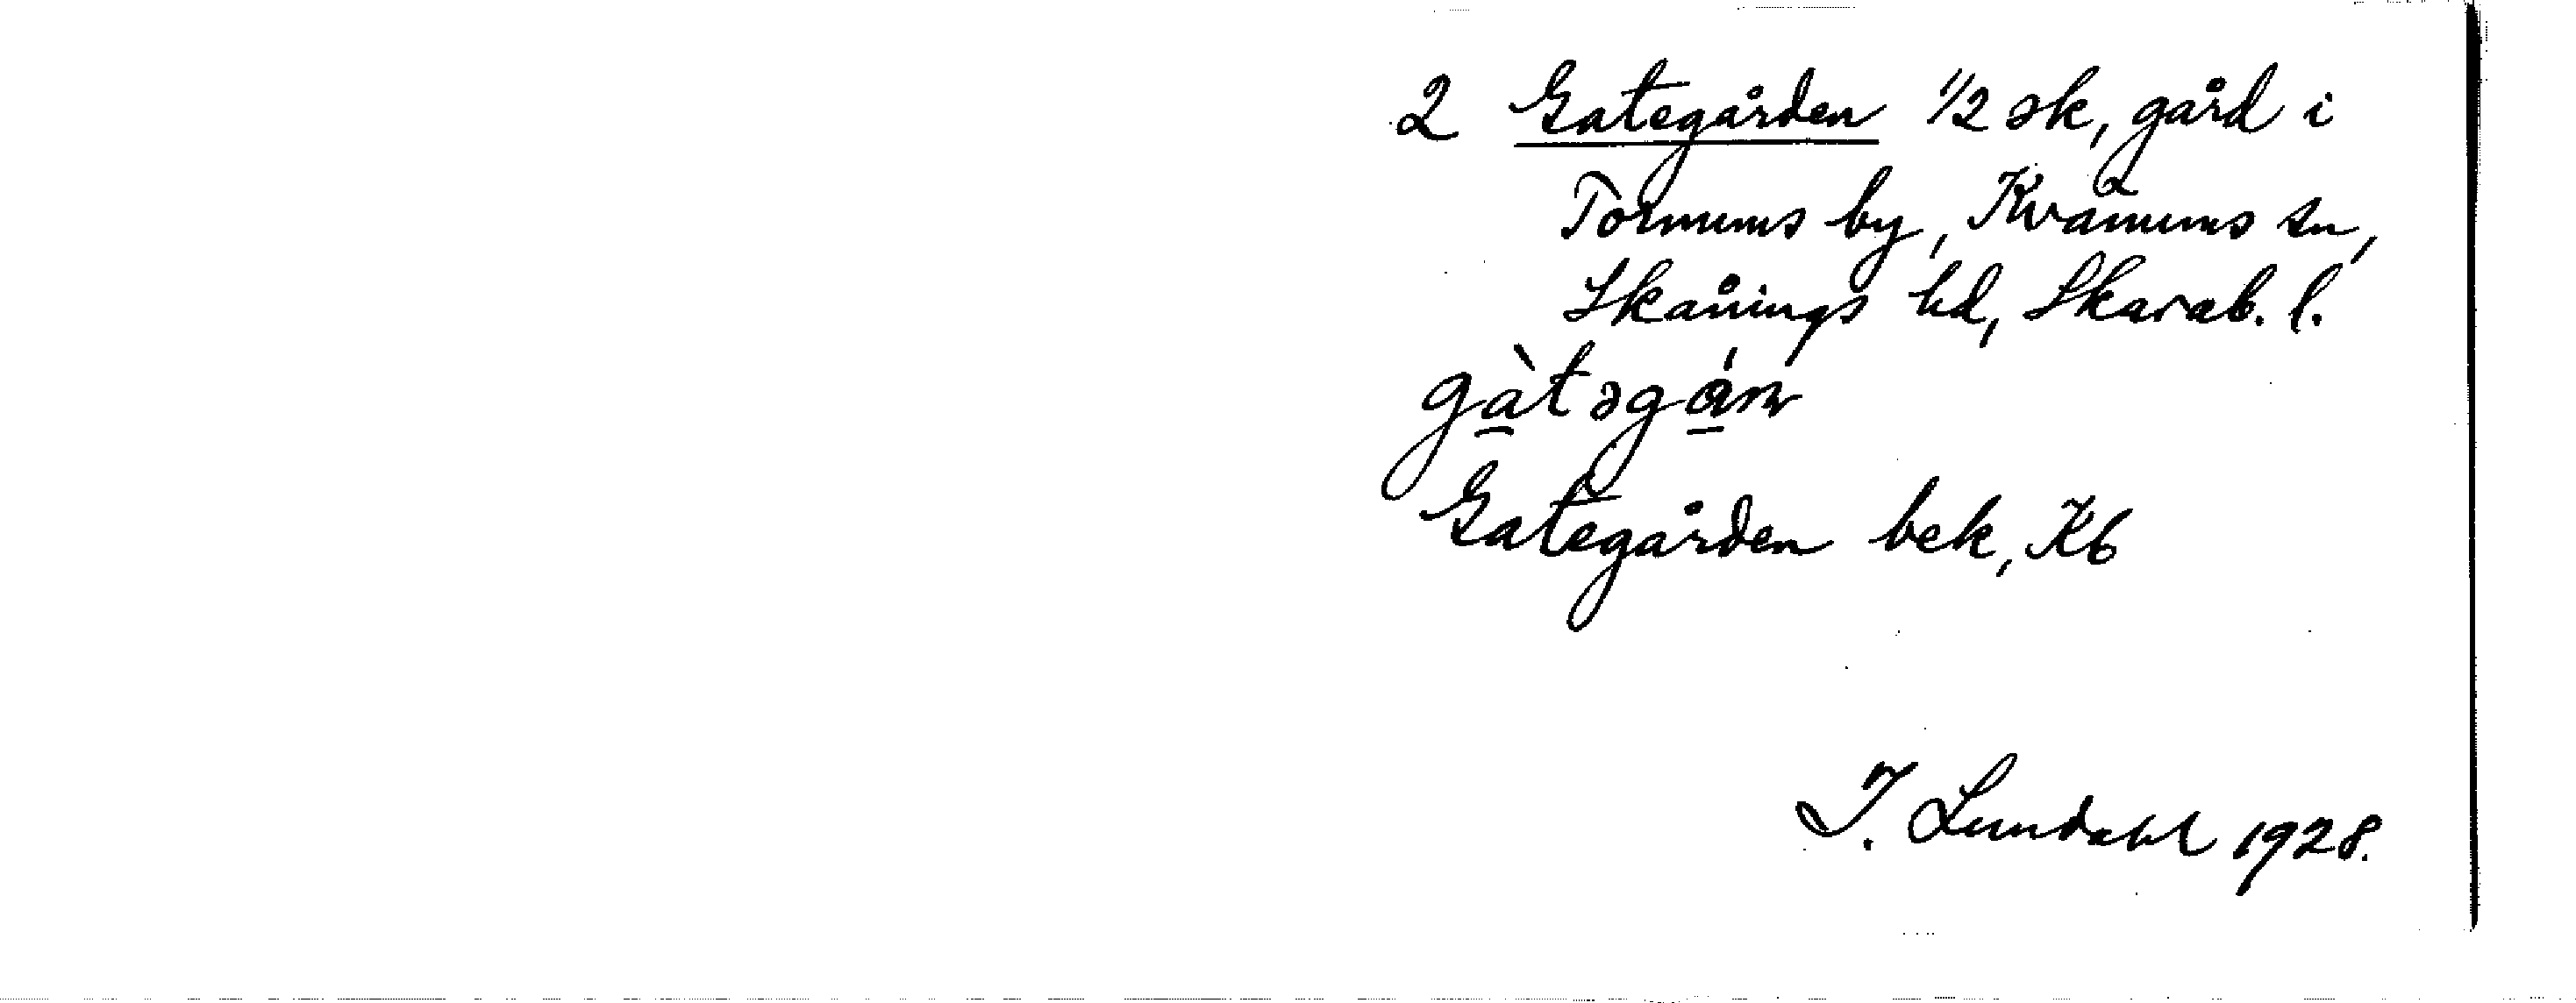 2 Gategården 1/2 sk, gård i
Tormums by, Kvänums sn,
Skånings hd, Skarab. l.
gàtəgán
Gategården bek, Kb
I. Lundahl 1928.